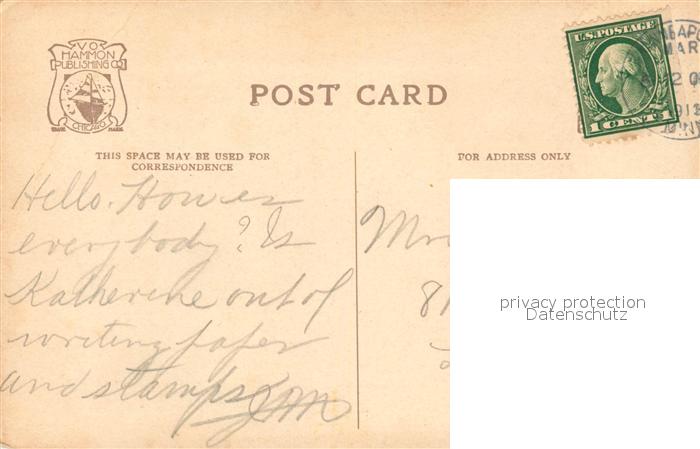 V.O.
HAMMON
PUBLISHING CO.
TRADE MARK
CHICAGO
POST CARD
U.S. POSTAGE
1 CENT 1
MAR
THIS SPACE MAY BE USED FOR
CORRESPONDENCE
FOR ADDRESS ONLY
Hello. How is
everybody? Is
Katherine out of
writing paper
and stamps
privacy protection
Datenschutz